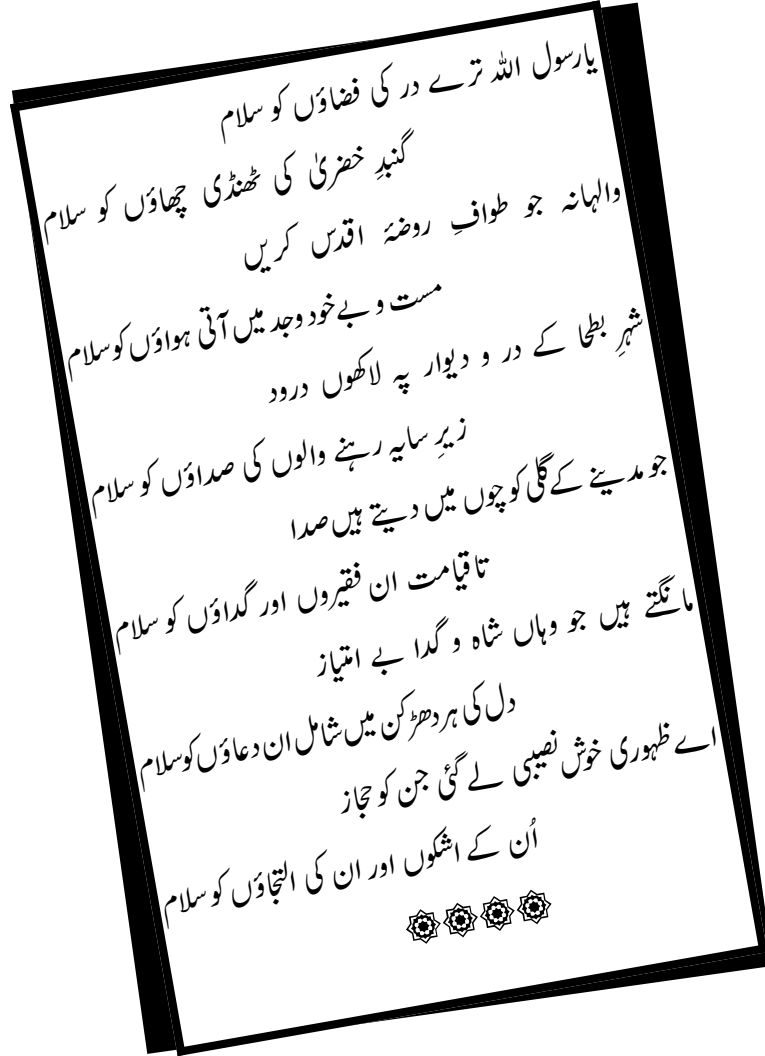 یارسول اللہ ترے در کی فضاؤں کو سلام
گنبدِ خضریٰ کی ٹھنڈی چھاؤں کو سلام
والہانہ جو طوافِ روضۂ اقدس کریں
مست و بے خود وجد میں آتی ہواؤں کو سلام
شہرِ بطحا کے در و دیوار پہ لاکھوں درود
زیرِ سایہ رہنے والوں کی صداؤں کو سلام
جو مدینے کے گلی کوچوں میں دیتے ہیں صدا
تا قیامت ان فقیروں اور گداؤں کو سلام
مانگتے ہیں جو وہاں شاہ و گدا بے امتیاز
دل کی ہر دھڑکن میں شامل ان دعاؤں کو سلام
اے ظہوری خوش نصیبی لے گئی جن کو حجاز
اُن کے اشکوں اور ان کی التجاؤں کو سلام